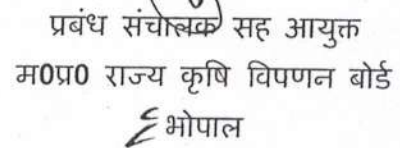 प्रबंध संचालक सह आयुक्त
म0प्र0 राज्य कृषि विपणन बोर्ड
भोपाल